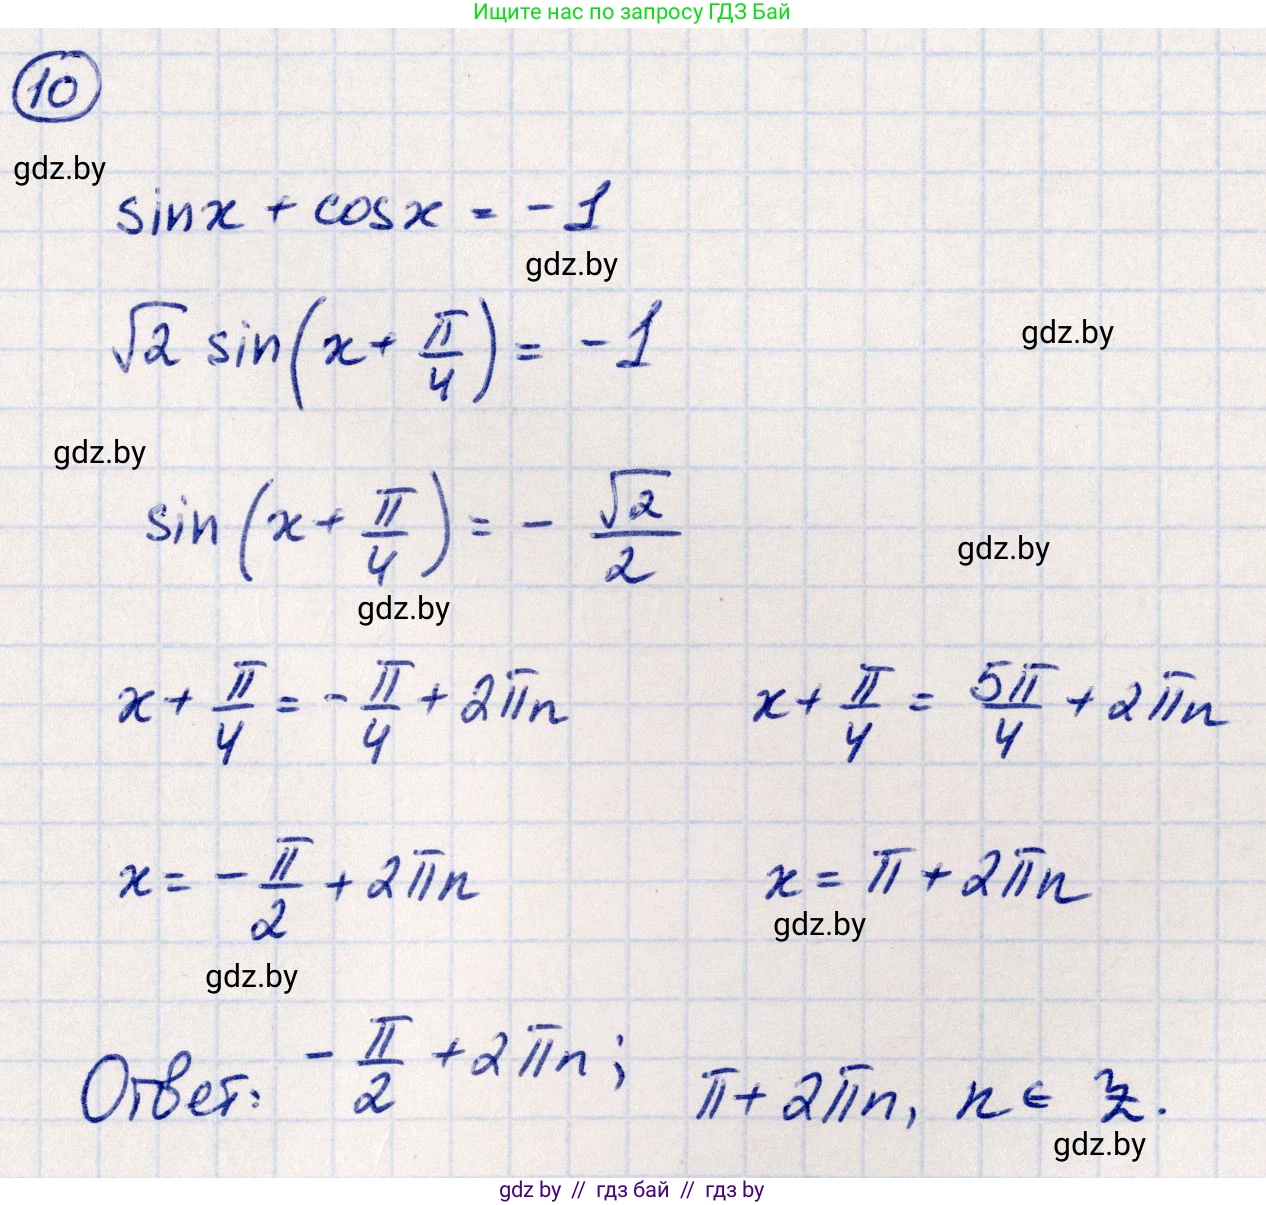 Ищите нас по запросу ГДЗ Бай
10
gdz.by
sinx + cosx = -1
gdz.by
√2 sin(x + π/4) = -1
gdz.by
gdz.by
sin(x + π/4) = - √2/2
gdz.by
gdz.by
x + π/4 = - π/4 + 2πn x + π/4 = 5π/4 + 2πn
x = - π/2 + 2πn x = π + 2πn
gdz.by
gdz.by
Ответ: - π/2 + 2πn; π + 2πn, n ∈ Z.
gdz.by
gdz by // гдз бай // гдз by